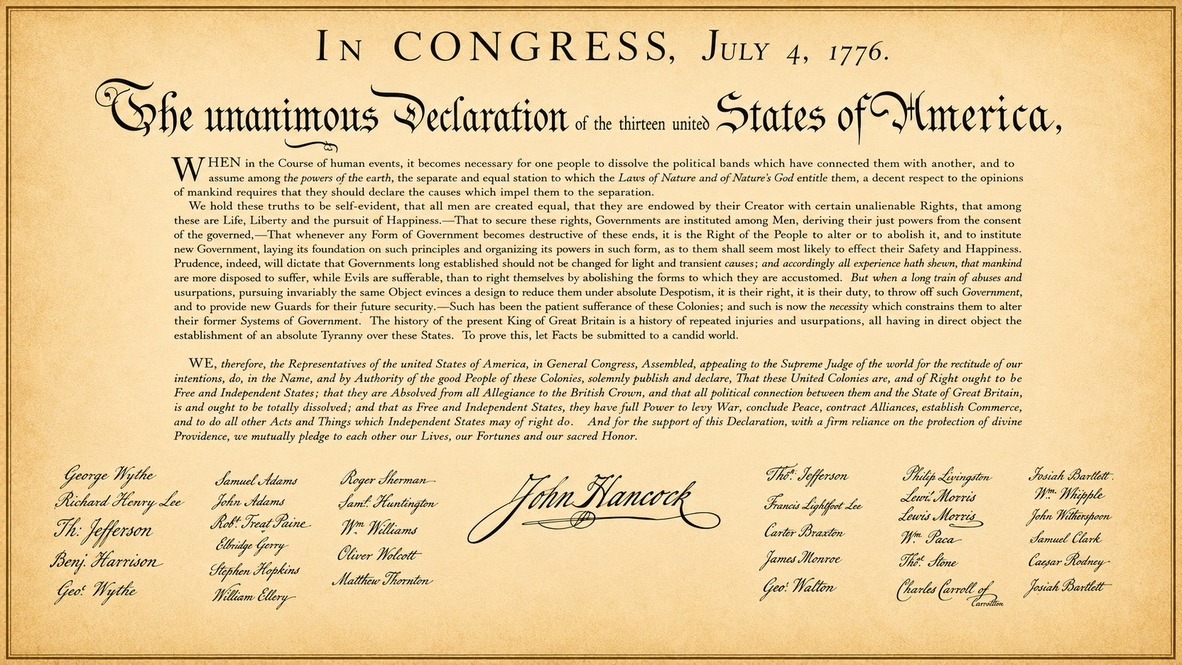 IN CONGRESS, JULY 4, 1776.
The unanimous Declaration of the thirteen united States of America,
WHEN in the Course of human events, it becomes necessary for one people to dissolve the political bands which have connected them with another, and to
assume among the powers of the earth, the separate and equal station to which the Laws of Nature and of Nature's God entitle them, a decent respect to the opinions
of mankind requires that they should declare the causes which impel them to the separation.
We hold these truths to be self-evident, that all men are created equal, that they are endowed by their Creator with certain unalienable Rights, that among
these are Life, Liberty and the pursuit of Happiness.—That to secure these rights, Governments are instituted among Men, deriving their just powers from the consent
of the governed,—That whenever any Form of Government becomes destructive of these ends, it is the Right of the People to alter or to abolish it, and to institute
new Government, laying its foundation on such principles and organizing its powers in such form, as to them shall seem most likely to effect their Safety and Happiness.
Prudence, indeed, will dictate that Governments long established should not be changed for light and transient causes; and accordingly all experience hath shewn, that mankind
are more disposed to suffer, while Evils are sufferable, than to right themselves by abolishing the forms to which they are accustomed. But when a long train of abuses and
usurpations, pursuing invariably the same Object evinces a design to reduce them under absolute Despotism, it is their right, it is their duty, to throw off such Government,
and to provide new Guards for their future security.—Such has been the patient sufferance of these Colonies; and such is now the necessity which constrains them to alter
their former Systems of Government. The history of the present King of Great Britain is a history of repeated injuries and usurpations, all having in direct object the
establishment of an absolute Tyranny over these States. To prove this, let Facts be submitted to a candid world.
WE, therefore, the Representatives of the united States of America, in General Congress, Assembled, appealing to the Supreme Judge of the world for the rectitude of our
intentions, do, in the Name, and by Authority of the good People of these Colonies, solemnly publish and declare, That these United Colonies are, and of Right ought to be
Free and Independent States; that they are Absolved from all Allegiance to the British Crown, and that all political connection between them and the State of Great Britain,
is and ought to be totally dissolved; and that as Free and Independent States, they have full Power to levy War, conclude Peace, contract Alliances, establish Commerce,
and to do all other Acts and Things which Independent States may of right do. And for the support of this Declaration, with a firm reliance on the protection of divine
Providence, we mutually pledge to each other our Lives, our Fortunes and our sacred Honor.
George Wythe
Richard Henry Lee
Th: Jefferson
Benj. Harrison
Geo: Wythe
Samuel Adams
John Adams
Robt. Treat Paine
Elbridge Gerry
Stephen Hopkins
William Ellery
Roger Sherman
Saml. Huntington
Wm Williams
Oliver Wolcott
Matthew Thornton
John Hancock
Thos. Jefferson
Francis Lightfoot Lee
Carter Braxton
James Monroe
Geo: Walton
Philip Livingston
Lewi. Morris
Lewis Morris
Wm. Paca
Thos. Stone
Charles Carroll of
Carrollton
Josiah Bartlett
Wm. Whipple
John Witherspoon
Samuel Clark
Caesar Rodney
Josiah Bartlett